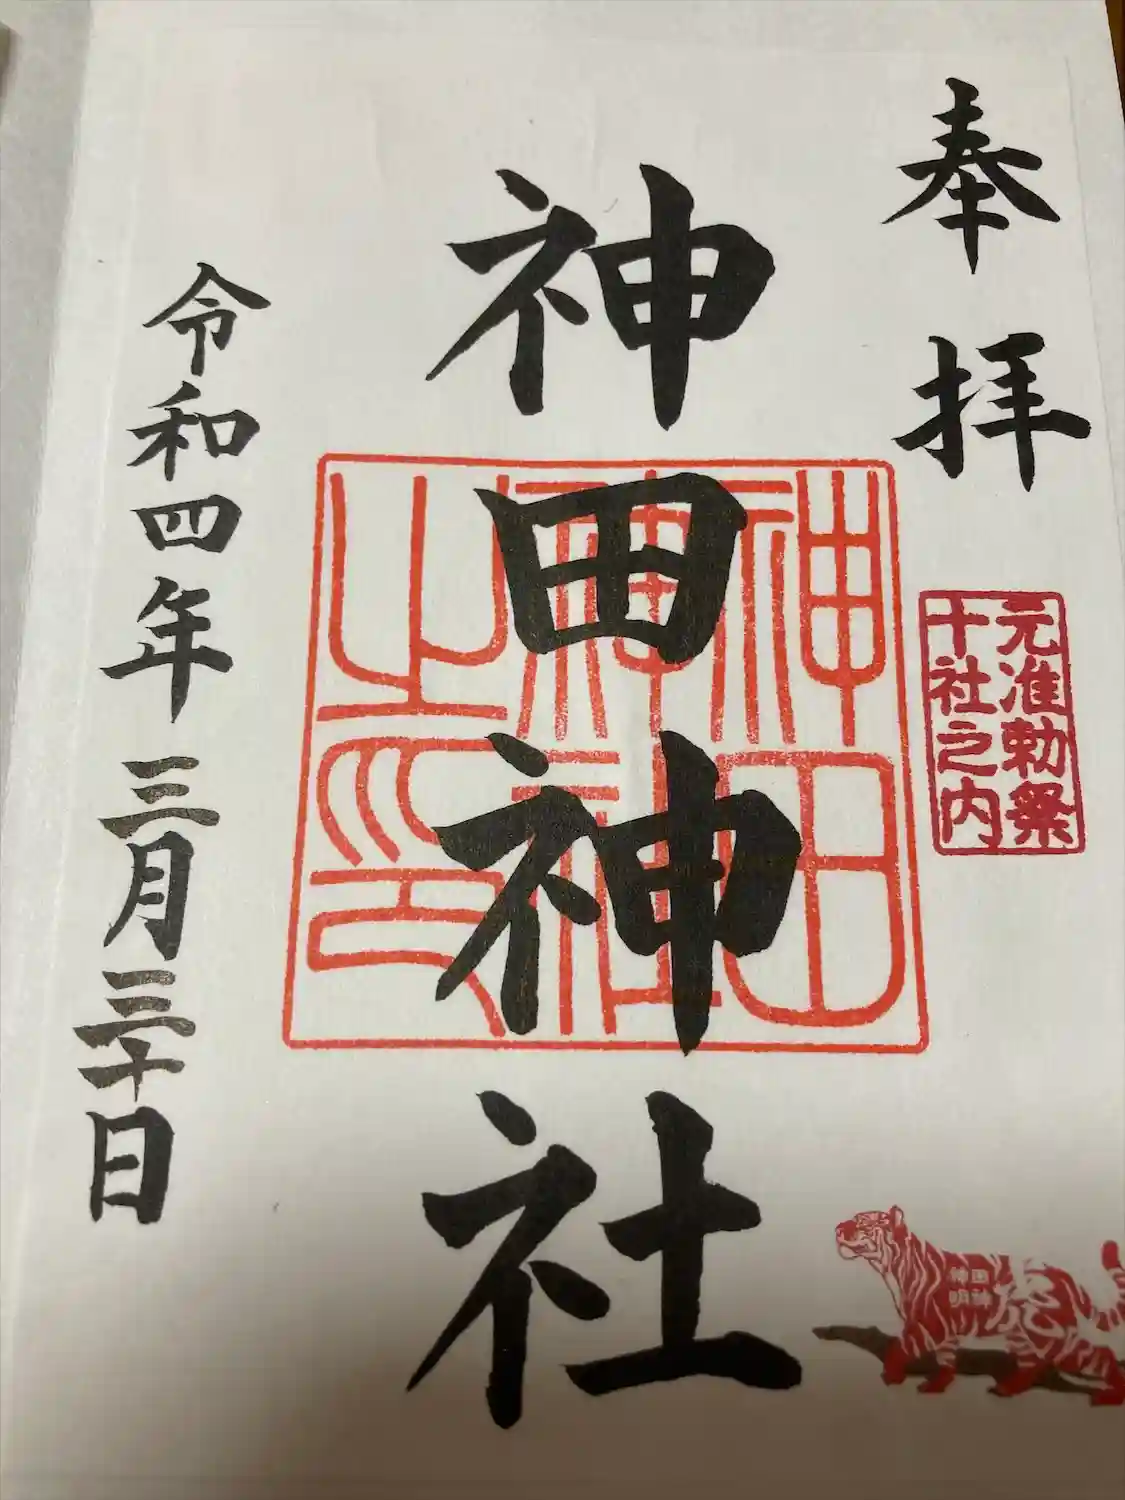 奉拝
元准勅祭
十社之内
神田神社
神田神社之印
令和四年三月三十日